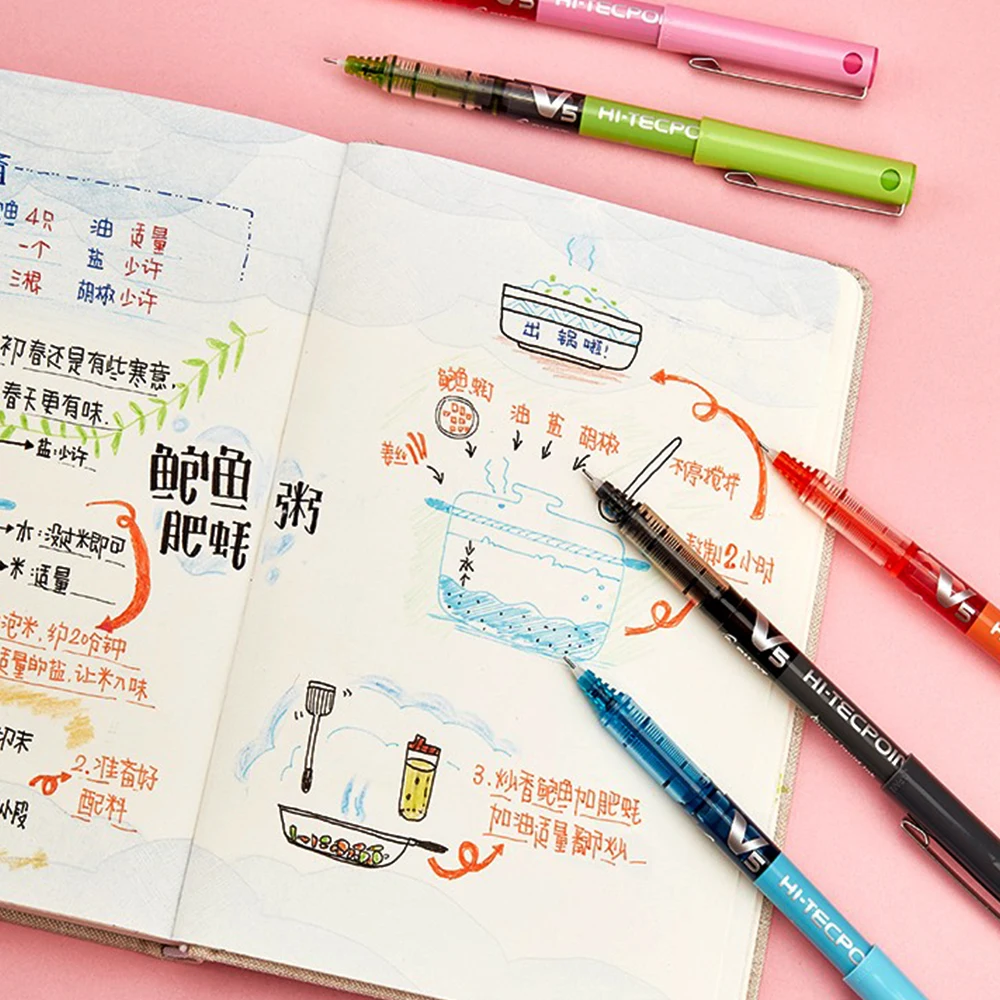 鲍鱼4只 油 适量
一个 盐 少许
三根 胡椒少许
初春还是有些寒意,
春天更有味.
盐:少许
水:没过米即可
米 适量
泡米,约20分钟
适量的盐,让米入味
切末
小段
2.准备好
配料
鲍鱼
肥蚝
粥
出锅啦!
鲍鱼 蚝
油 盐 胡椒
姜丝
不停搅拌
熬制2小时
水
3.炒香鲍鱼加肥蚝
加油适量翻炒
V5 HI-TECPOI
V5 HI-TECPO
V5
V5 HI-TECPOIN
V5 HI-TECPO